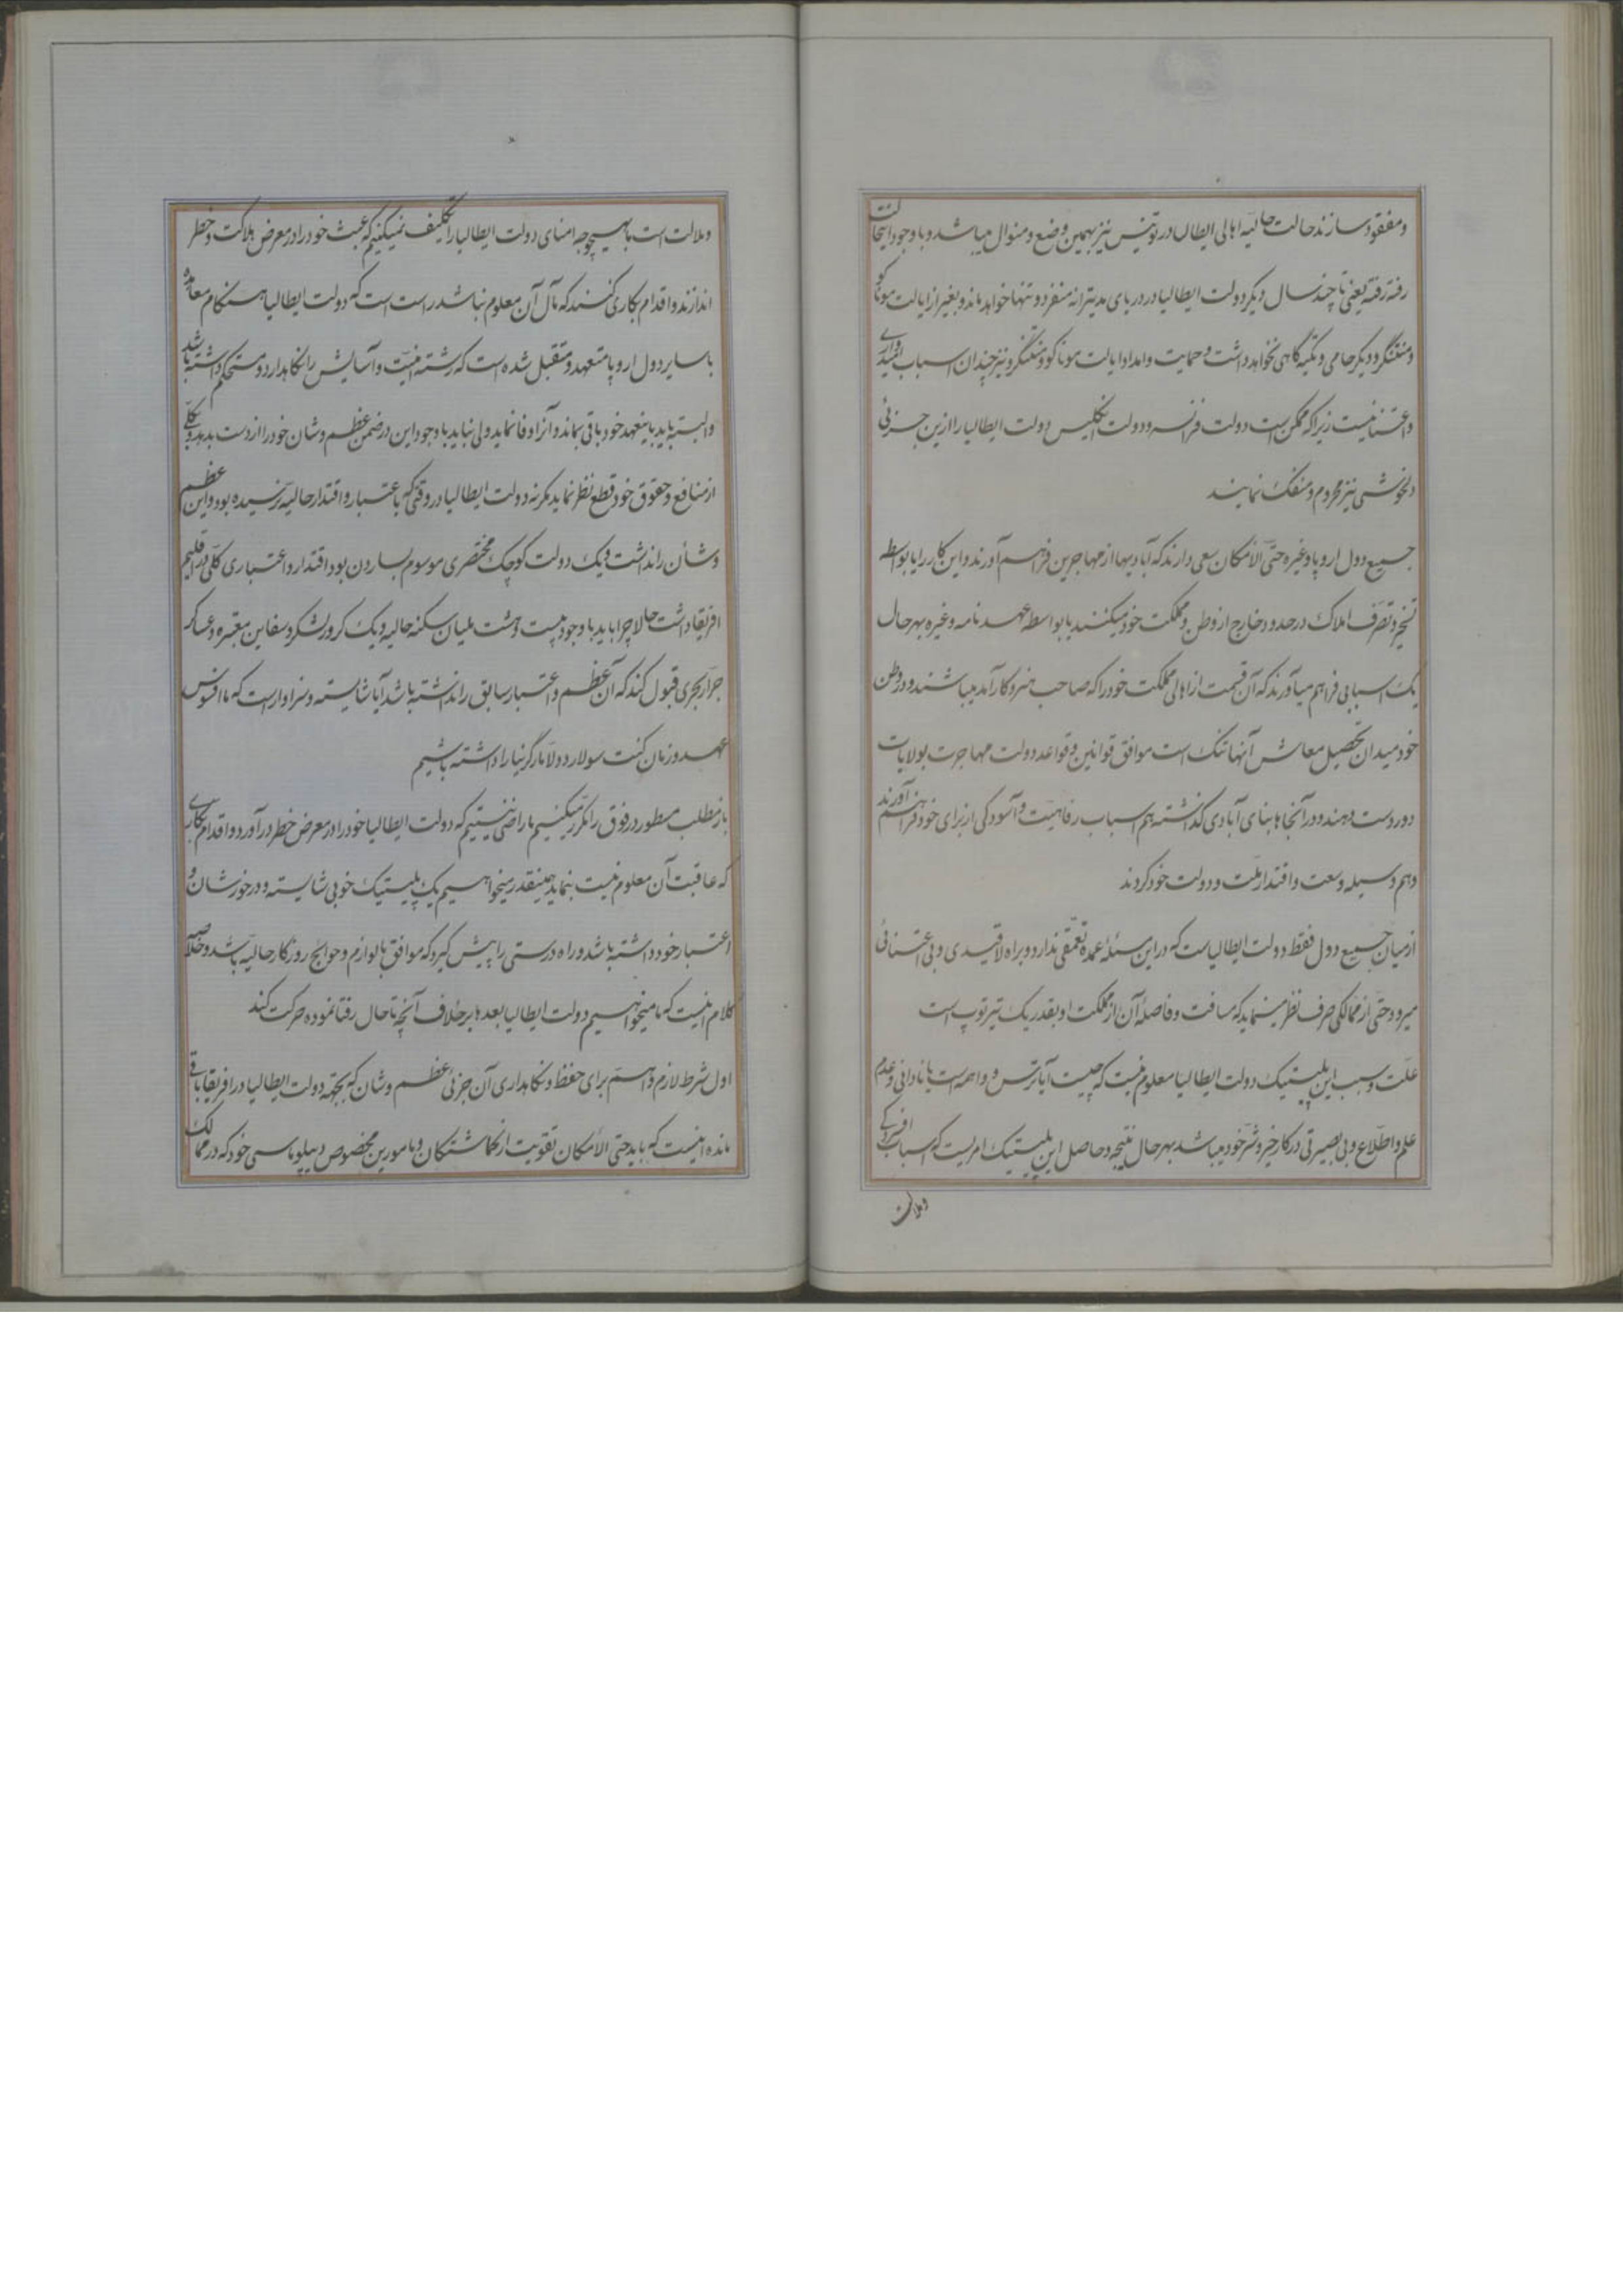 و مفقود سازند حالت حالیه اهالی ایطالیا در تونس نیز بهمین وضع و منوال میباشد و با وجود اینحالت
رفته رفته یعنی تا چند سال دیگر دولت ایطالیا در دریای مدیترانه منفرد و تنها خواهد ماند و بغیر از ایالت موناکو
و منتنگرو دیگر حامی و تکیه گاهی نخواهد داشت و حمایت و امداد ایالت موناکو و منتنگرو نیز چندان اسباب امیدواری
و اعتنا نیست زیرا که ممکن است دولت فرانسه و دولت انگلیس دولت ایطالیا را ازین جزئی
دلخوشی نیز محروم و منفک نمایند
جمیع دول اروپا و غیره حتی الامکان سعی دارند که آبادیها از مهاجرین فراهم آورند و این کار را یا بواسطه
تسخیر و تصرف املاک در حدود خارج از وطن و مملکت خود میکنند یا بواسطه عهدنامه و غیره بهر حال
یک اسبابی فراهم میآورند که آن قسمت از اهالی مملکت خود را که صاحب هنر و کارآمد میباشند و در وطن
خود میدان تحصیل معاش آنها تنک است موافق قوانین و قواعد دولت مهاجرت بولایات
دور دست دهند و در آنجاها بنای آبادی گذاشته هم اسباب رفاهیت و آسودگی از برای خود فراهم آورند
و هم وسیله وسعت و اقتدار ملت و دولت خود گردند
از میان جمیع دول فقط دولت ایطالیاست که در این مسئله عمده تعمقی ندارد و براه لاقیدی و بی اعتنائی
میرود و حتی از ممالکی صرف نظر مینماید که مسافت و فاصله آن از مملکت او بقدر یک تیر توپ است
علت و سبب این پلیتیک دولت ایطالیا معلوم نیست که چیست آیا ترس و واهمه است یا نادانی و عدم
علم و اطلاع و بی بصیرتی در کار خیر و شر خود میباشد بهر حال نتیجه و حاصل این پلیتیک امریست که اسباب افسردگی
و ملالت
و ملالت است ما بهیچوجه امنای دولت ایطالیا را تکلیف نمیکنیم که عبث خود را در معرض هلاکت و خطر
اندازند و اقدام بکاری کنند که مآل آن معلوم نباشد راست است که دولت ایطالیا هنگام معاهده
با سایر دول اروپا متعهد و متقبل شده است که رشته امنیت و آسایش را نگاهدارد و مستحکم داشته باشد
و البته باید باین تعهد خود باقی بماند و آنرا وفا نماید ولی نباید با وجود این در ضمن عظم و شان خود را از دست بدهد و بکلی
از منافع و حقوق خود قطع نظر نماید مگر نه دولت ایطالیا در وقتی که باعتبار و اقتدار حالیه نرسیده بود و این عظم
و شان را نداشت و یک دولت کوچک مختصری موسوم بساردن بود اقتدار و اعتباری کلی در اقلیم
افریقا داشت حالا چرا باید با وجود بیست و هشت ملیان سکنه حالیه و یک کرور لشکر و سفاین معتبره و عساکر
جرار بحری قبول کند که آن عظم و اعتبار سابق را نداشته باشد آیا شایسته و سزاوار است که ما افسوس
عهد و زمان کنت سولار دولامارگریتا را داشته باشیم
باز مطلب مسطور در فوق را مکرر میکنیم ما راضی نیستیم که دولت ایطالیا خود را در معرض خطر در آورد و اقدام بکاری
که عاقبت آن معلوم نیست بنماید همینقدر میخواهیم یک پلیتیک خوبی شایسته و در خور شان و
اعتبار خود داشته باشد و راه درستی را پیش گیرد که موافق با لوازم و حوایج روزگار حالیه باشد و خلاصه
کلام اینست که ما میخواهیم دولت ایطالیا بعدها بر خلاف آنچه تا حال رفتار نموده حرکت کند
اول شرط لازم و اهم برای حفظ و نگاهداری آن جزئی عظم و شان که بجهة دولت ایطالیا در افریقا باقی
مانده اینست که باید حتی الامکان تقویت از گماشتگان و مامورین مخصوص دیپلوماسی خود که در ممالک